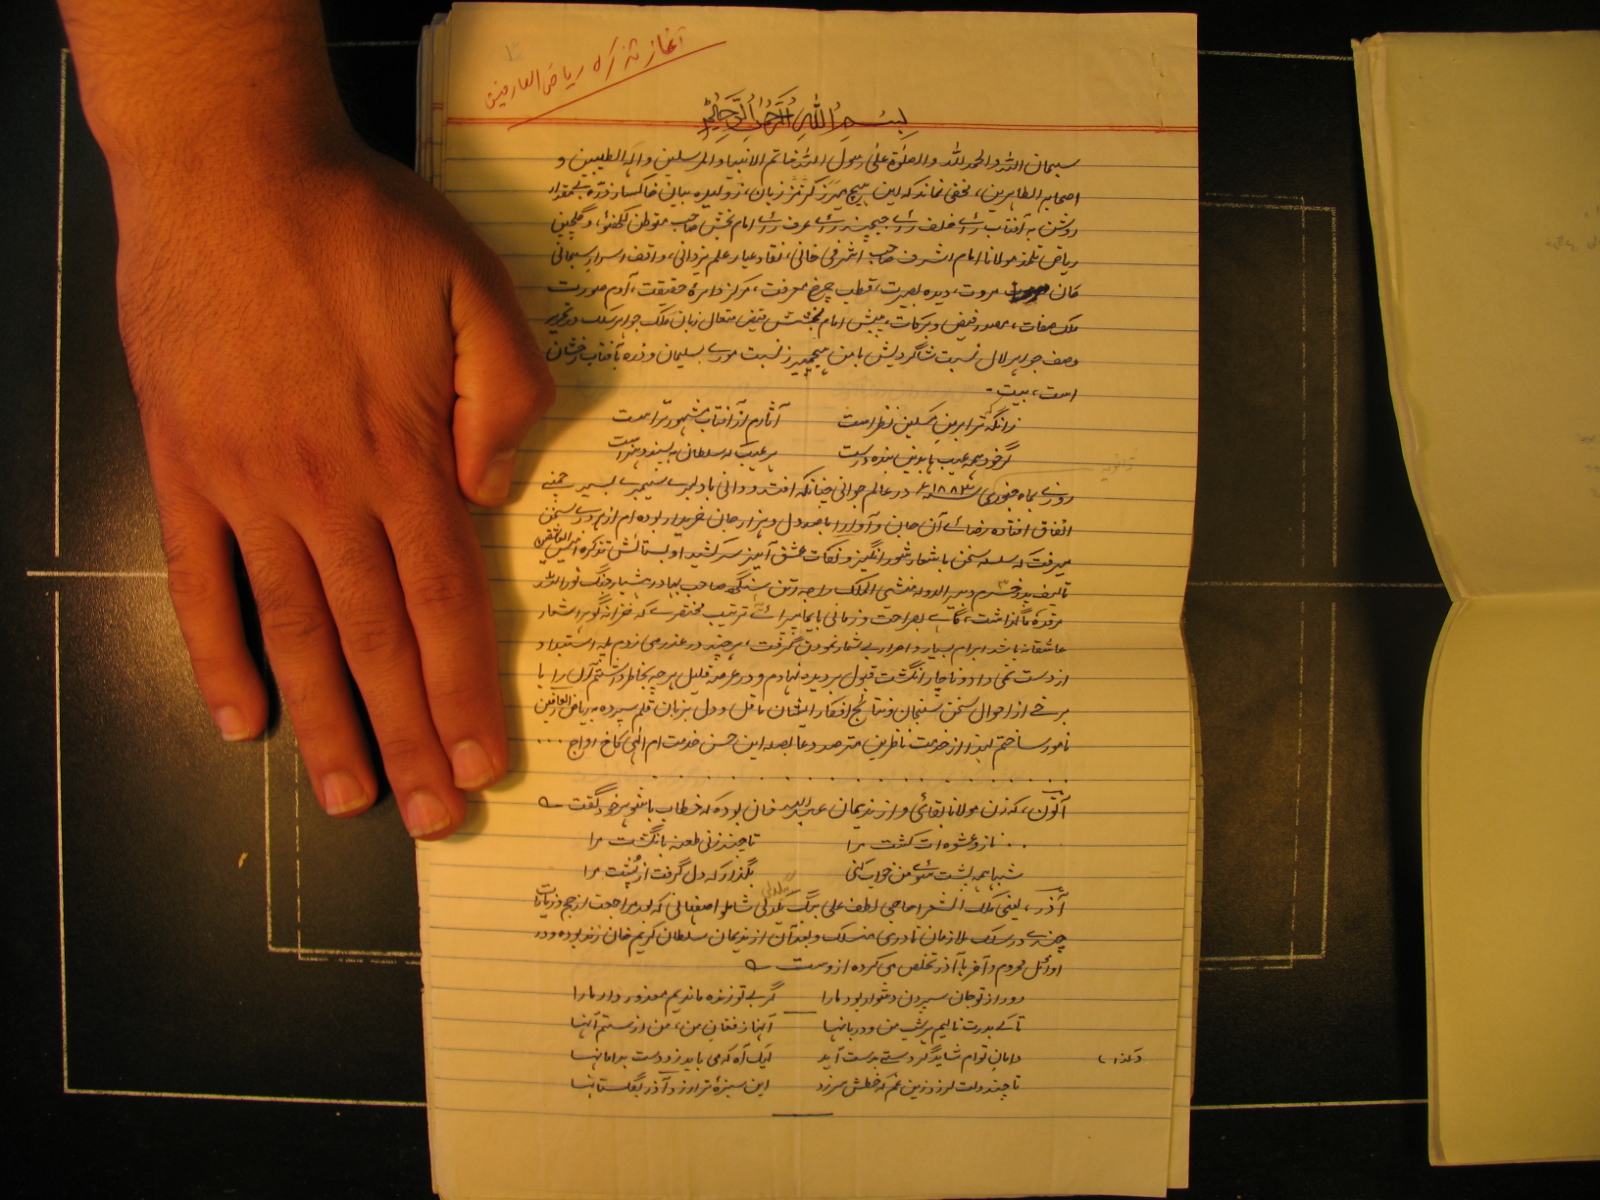 آغاز تذکره ریاض العارفین
بسم الله الرحمن الرحیم
سبحان الله والحمد لله والصلوة علی رسول الله خاتم الانبیاء والمرسلین وآله الطیبین و
اصحابه الطاهرین، مخفی نماند که این هیچمیرز کژمژ زبان، ژولیده بیان خاکسار ذرهٔ بیمقدار
روشن به آفتاب رائے خلف رائے عرف رائے امام بخش صاحب متوطن لکهنؤ، و گلچین
ریاض تلمذ مولانا امام اشرف صاحب اشرفی خانی، نقاد عیار علم یزدانی، واقف اسرار سبحانی
کان مروت، دیده بصیرت، قطب چرخ معرفت، مرکز دائرهٔ حقیقت، آدم صورت
ملک صفات، مصدر فیض و برکات، امام بخش زبان ملک جواهر سلک در تحریر
وصف جواهر لال نسبت شاگردیش با من هیچمیرز نسبت مورے بسلیمان و ذره با فتاب رخشان
است، بیت -
زانگه که ترا بر من مسکین نظر است آثارم از آفتاب مشهور تر است
گر خود همه عیب ها بدین بنده درست هر عیب که سلطان به پسندد هنر است
روزے بماه جنوری سنه ۱۸۸۳ء در عالم جوانی چنانکه افتد و دانی با دلبرے سیمبرے بسیر چمنے
اتفاق افتاده آن جان و آواز را با صد دل و هزار جان خریدار بوده ام از هر درے سخن
میرفت که سلسله سخن با شعار شور انگیز و نکات عشق آمیز سر کشید او بستائش تذکره انیس العاشقین
تالیف دبیر الدوله منشی الملک راجه رتن سنگه صاحب بهادر هشیار جنگ نور الله
مرقده گاهے بصراحت و زمانی بایما ترتیب مختصرے که از گوهر اشعار
عاشقانه باشد ابرام بسیار و اصرار بے شمار نمودن گرفت، هر چند در عذر می زدم پله استبداد
از دست نمی داد و ناچار انگشت قبول بر دیده نهادم و در عرصه قلیل هر چه بخاطر داشتم آن را با
برخے از احوال سخن سنجان و نتائج افکار ایشان ما قل و دل بزبان قلم سپرده به ریاض العارفین
نامور ساختم لهذا از خدمت ناظرین مترصد دعا بصله این حسن خدمت ام الهی کاخ ارواح ...
آتون، که زن مولانا بقائی و از ندیمان عبدالله خان بوده که خطاب با شوهر خود گفت
. . نازو عشوه ات کشت مرا تا چند زنی طعنه بانگشت مرا
شبها همه پشت سوئے من خواب کنی بگذار که دل گرفت از پشت مرا
آذر، یعنی ملک الشعرا حاجی لطف علی بیگ بیگدلی شاملو اصفهانی که بعد مراجعت از حج و زیارات
چندے در سلک ملازمان نادری منسلک و بعد آن از ندیمان سلطان کریم خان زند بوده و در
اوائل محروم و آخر با آذر تخلص می کرده ازوست
دور از تو جان سپردن دشوار بود ما را گر بے تو زنده ماندیم معذور دار ما را
تا کے بدرت نالیم هر شب من و دربانها آنها ز فغان من، من از ستم آنها
دامان توام شاید گر دستے بدست آید لیک آه که می باید زد دست بدامانها
تا چند دلت لرزد زین غم که خطش سر زد این سبزه ترا رزد آذر بگلستانها